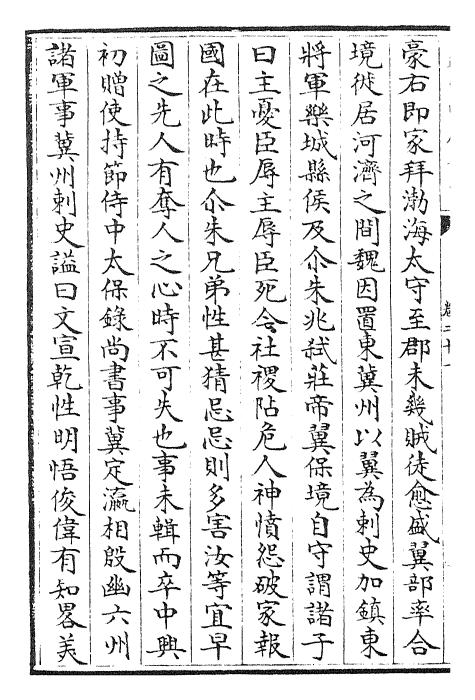 豪右即家拜渤海太守至郡未幾賊徒愈盛翼部率合
境徙居河濟之間魏因置東冀州以翼為刺史加鎮東
將軍樂城縣侯及尒朱兆弒莊帝翼保境自守謂諸子
曰主憂臣辱主辱臣死今社稷阽危人神憤怨破家報
國在此時也尒朱兄弟性甚猜忌忌則多害汝等宜早
圖之先人有奪人之心時不可失也事未輯而卒中興
初贈使持節侍中太保錄尚書事冀定瀛相殷幽六州
諸軍事冀州刺史謚曰文宣乾性明悟俊偉有知畧美